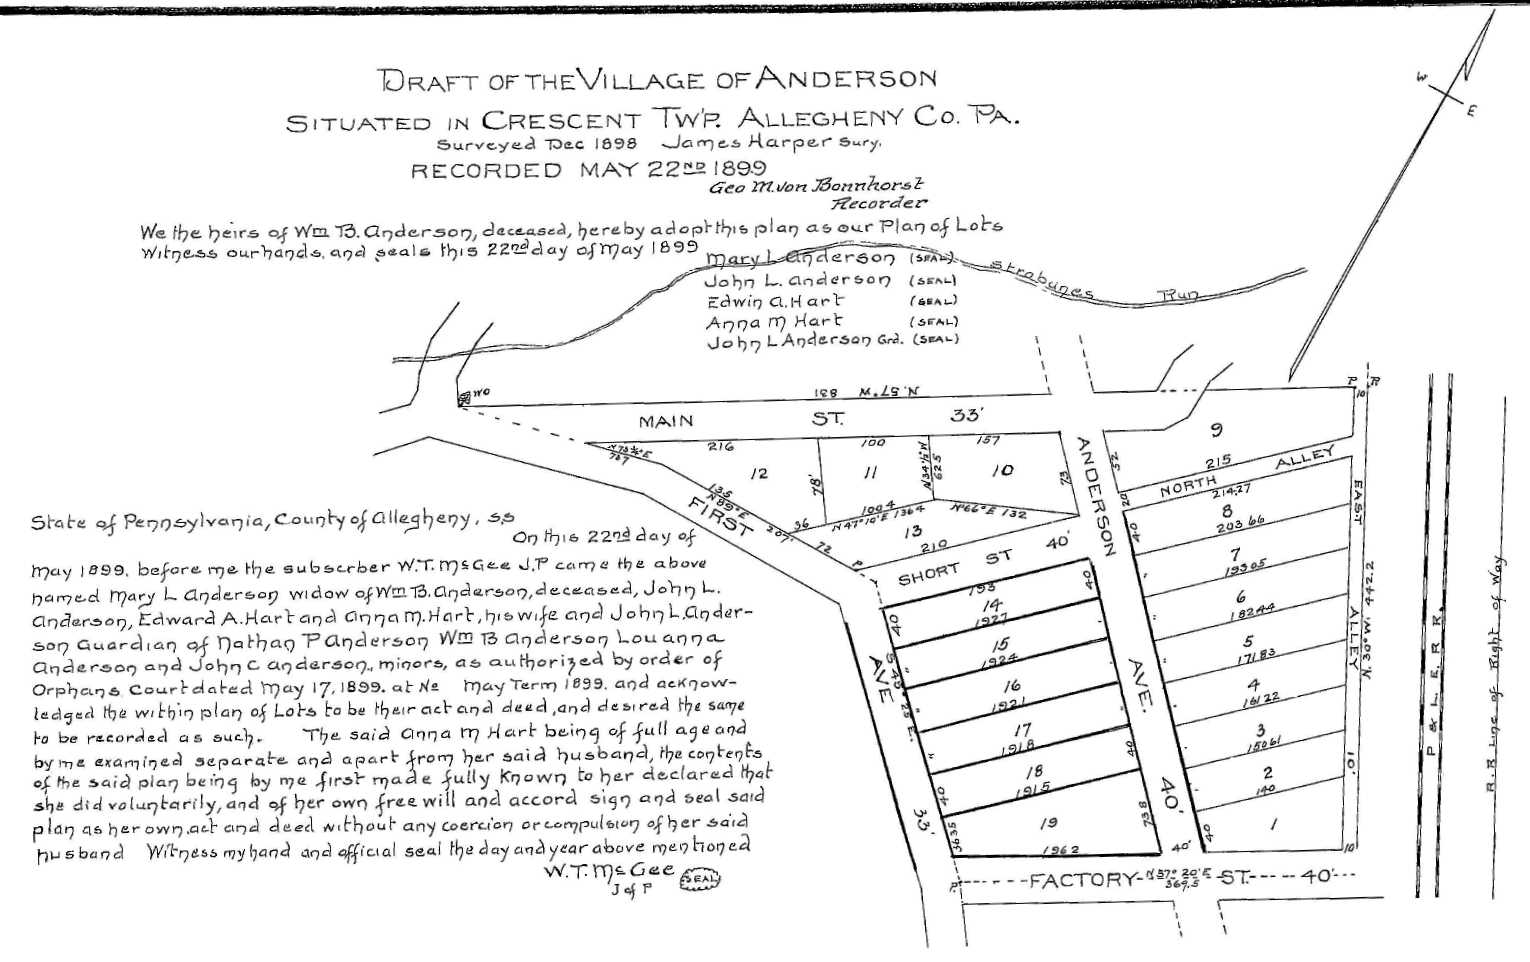 DRAFT OF THE VILLAGE OF ANDERSON
SITUATED IN CRESCENT TW'P. ALLEGHENY CO. PA.
Surveyed Dec 1898 James Harper Surv.
RECORDED MAY 22ND 1899
Geo M. von Bonnhorst
Recorder
We the heirs of Wm B. Anderson, deceased, hereby adopt this plan as our Plan of Lots
Witness our hands, and seals this 22nd day of May 1899
Mary L Anderson (SEAL)
John L. Anderson (SEAL)
Edwin A. Hart (SEAL)
Anna M Hart (SEAL)
John L Anderson Grd. (SEAL)
W
E
Strabunes Run
State of Pennsylvania, County of Allegheny, s.s
On this 22nd day of
May 1899. before me the subscrber W.T. McGee J.P came the above
named Mary L Anderson widow of Wm B. Anderson, deceased, John L.
Anderson, Edward A. Hart and Anna M. Hart, his wife and John L. Ander-
son Guardian of Nathan P Anderson Wm B Anderson Louanna
Anderson and John C Anderson., minors, as authorized by order of
Orphans Court dated May 17, 1899. at No May Term 1899. and acknow-
ledged the within plan of Lots to be their act and deed, and desired the same
to be recorded as such. The said Anna M Hart being of full age and
by me examined separate and apart from her said husband, the contents
of the said plan being by me first made fully known to her declared that
she did voluntarily, and of her own free will and accord sign and seal said
plan as her own, act and deed without any coercion or compulsion of her said
husband Witness my hand and official seal the day and year above mentioned
W.T. McGee
J of P
SEAL
WO
N. 57° W 831
P R
10
MAIN ST. 33'
216
100
157
12
11
10
78'
N 34½° W
62.5
73
135
N 89° E
207'
36
72
P
100.4
N 47° 10' E 136.4
N 66° E 132
13
210
FIRST AVE 33'
SHORT ST 40'
ANDERSON AVE. 40'
52
9
215
NORTH ALLEY
20
214.27
8
203.66
40
7
193.05
6
182.44
5
171.83
4
161.22
3
150.61
2
140
1
40
EAST ALLEY 10'
N. 30° W. 442.2
10
193
40
14
192.7
40
15
192.4
16
192.1
17
191.8
40
18
191.5
40
19
73.8
39.35
196.2
40'
P.
FACTORY ST. 40'
N 57° 20' E
369.5
P & L E R R.
R.R Line of Right of Way